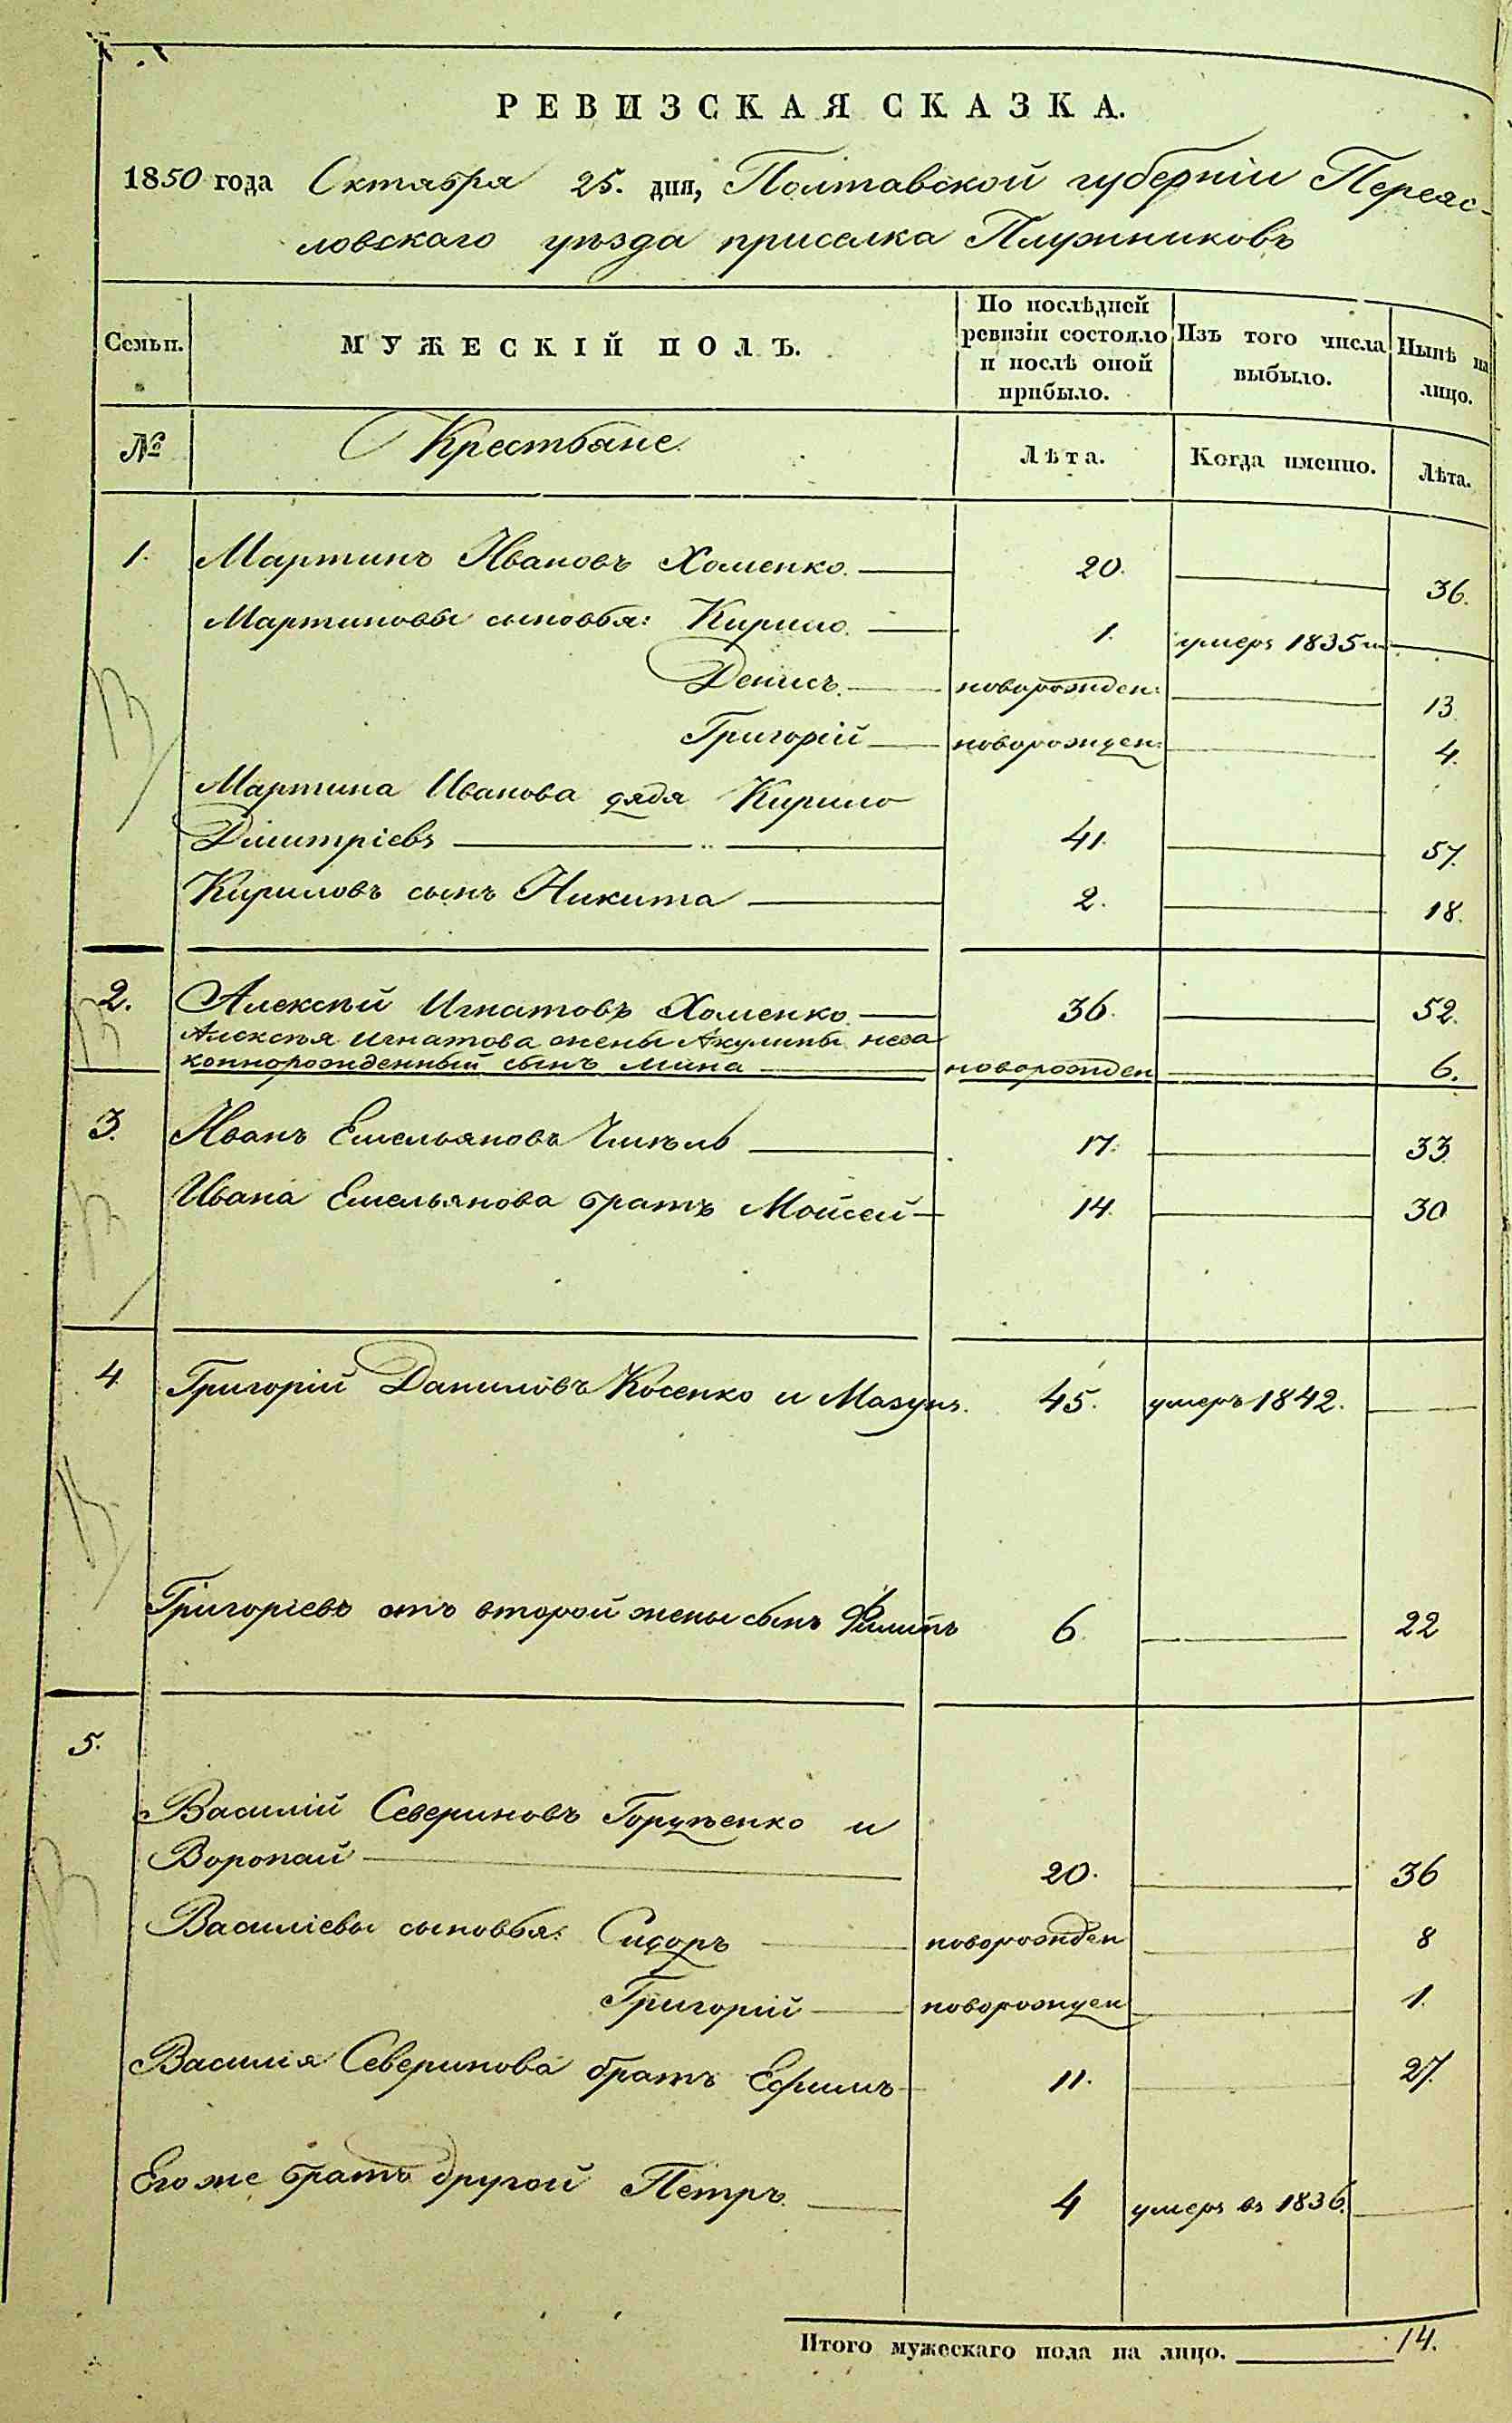 РЕВИЗСКАЯ СКАЗКА.
1850 года Октября 25. дня, Полтавской губерніи Переяс-
ловскаго уѣзда приселка Плужниковъ
Семьи. МУЖЕСКІЙ ПОЛЪ. По послѣдней ревизіи состояло и послѣ оной прибыло. Изъ того числа выбыло. Нынѣ на лицо.
№ Крестьяне. Лѣта. Когда именно. Лѣта.
1. Мартинъ Ивановъ Хоменко. 20. 36.
Мартиновы сыновья: Кирило. 1. умеръ 1835
Денисъ. новорожден: 13.
Григорій новорожден: 4.
Мартина Иванова дядя Кирило
Дмитріевъ 41. 57.
Кириловъ сынъ Никита 2. 18.
2. Алексѣй Игнатовъ Хоменко. 36. 52.
Алексѣя Игнатова жены Акулины неза
коннорожденный сынъ Мина новорожден 6.
3. Иванъ Емельяновъ 17. 33.
Ивана Емельянова братъ Мойсей 14. 30
4 Григорій Даниловъ Косенко и Мазунъ. 45. умеръ 1842.
Григоріевъ отъ второй жены сынъ Филипъ 6. 22
5.
Василій Севериновъ и
Воропай 20. 36
Василіевы сыновья: Сидоръ новорожден 8
Григорій новорожден 1.
Василія Северинова братъ Ефимъ 11. 27.
Его же братъ другой Петръ. 4 умеръ въ 1836.
Итого мужескаго пола на лицо. 14.